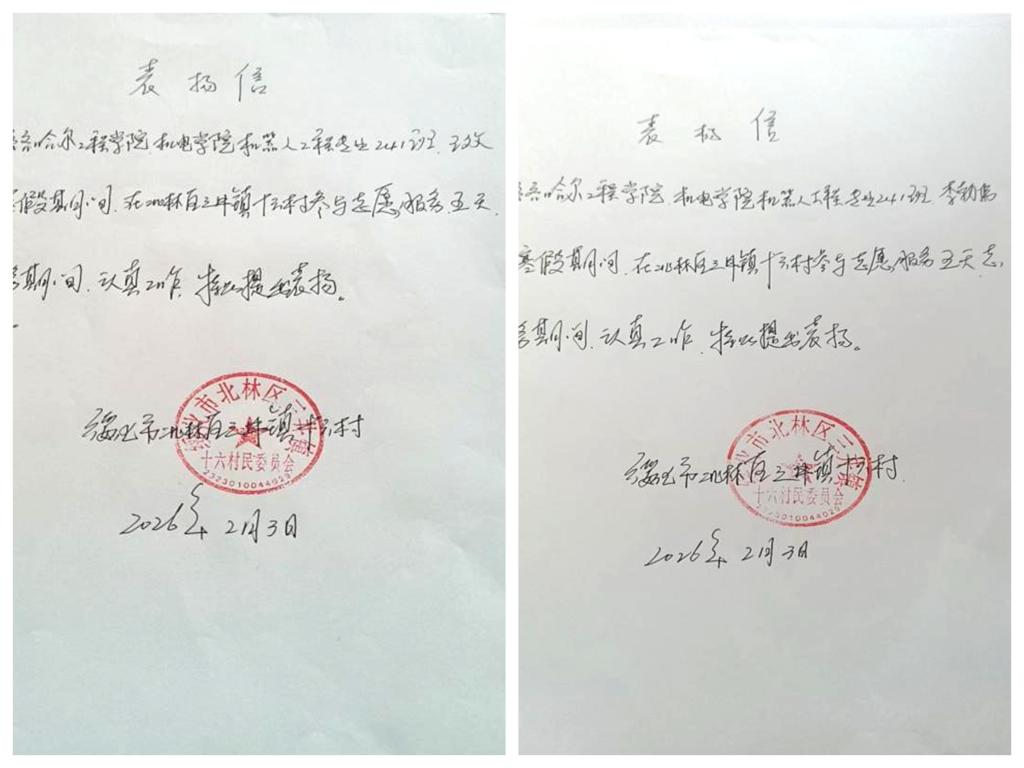 表扬信
齐哈尔工程学院机电学院机器人工程专业241班
寒假期间,在北林区三井镇十六村参与志愿服务五天,
期间,认真工作,特此提出表扬。
绥化市北林区三井镇十六村
市北林区三井镇
十六村民委员会
2026年2月3日
表扬信
哈尔工程学院,机电学院机器人工程专业241班
寒假期间,在北林区三井镇十六村参与志愿服务五天,志
期间,认真工作,特此提出表扬。
绥化市北林区三井镇十六村
市北林区三井镇
十六村民委员会
2026年2月3日